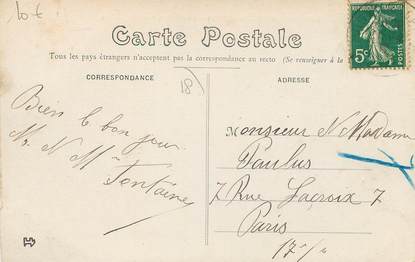 10 €
Carte Postale
Tous les pays étrangers n'acceptent pas la correspondance au recto (Se renseigner à la
CORRESPONDANCE
ADRESSE
18
5c
POSTES
Bien le bon jour
Mr N Me
Fontaine
Monsieur N Madame
Paulus
7 Rue Lacroix 7
Paris
17e